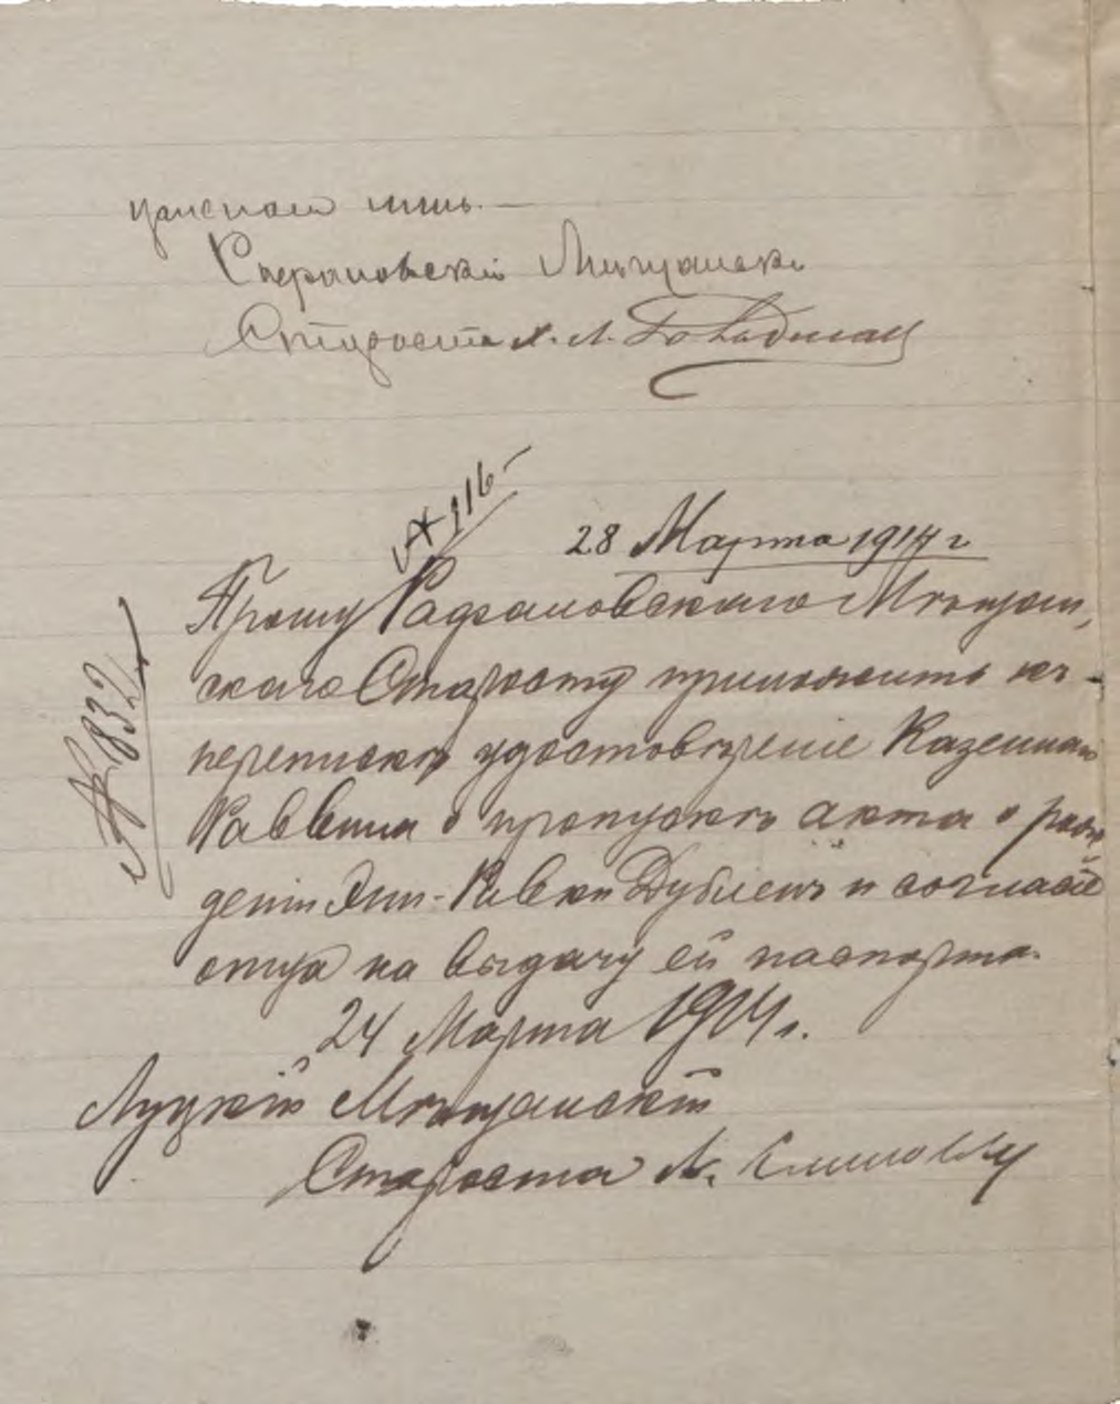 Мѣщански
Староста Х. Л.
№ 116
28 Марта 1914 г
Прошу Рафаловскаго Мѣщан,
скаго Старосту приложить къ
перепискѣ удостовѣреніе Казеннаго
Раввина о пропускѣ акта о рож
деніи Эни-Ривки Дублеиъ и согласіе
отца на выдачу ей паспорта.
24 Марта 1914 г.
Луцкій Мѣщанскій
Староста
№ 832